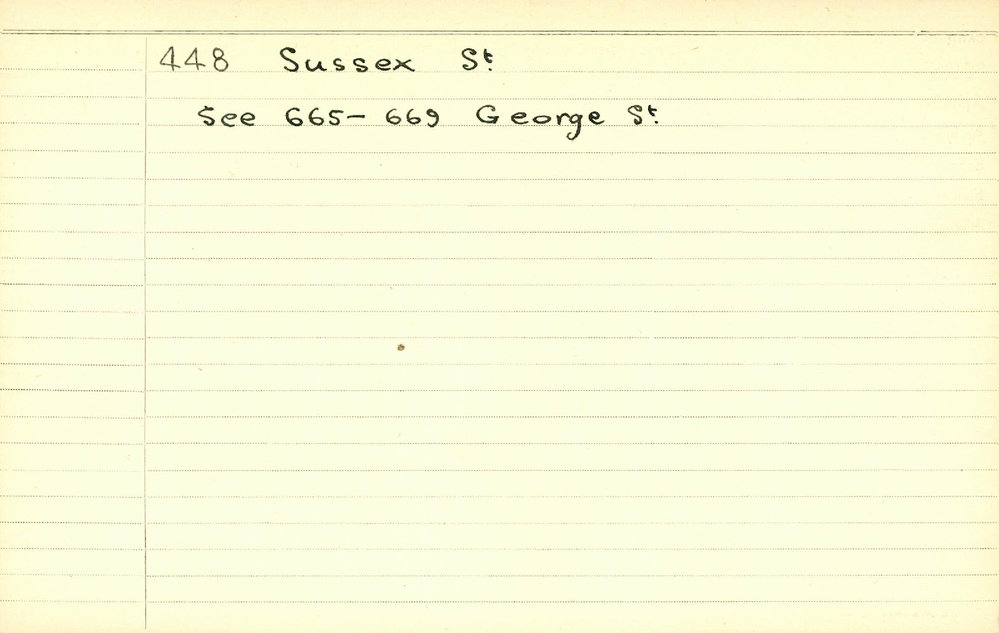 448 Sussex St.
See 665-669 George St.